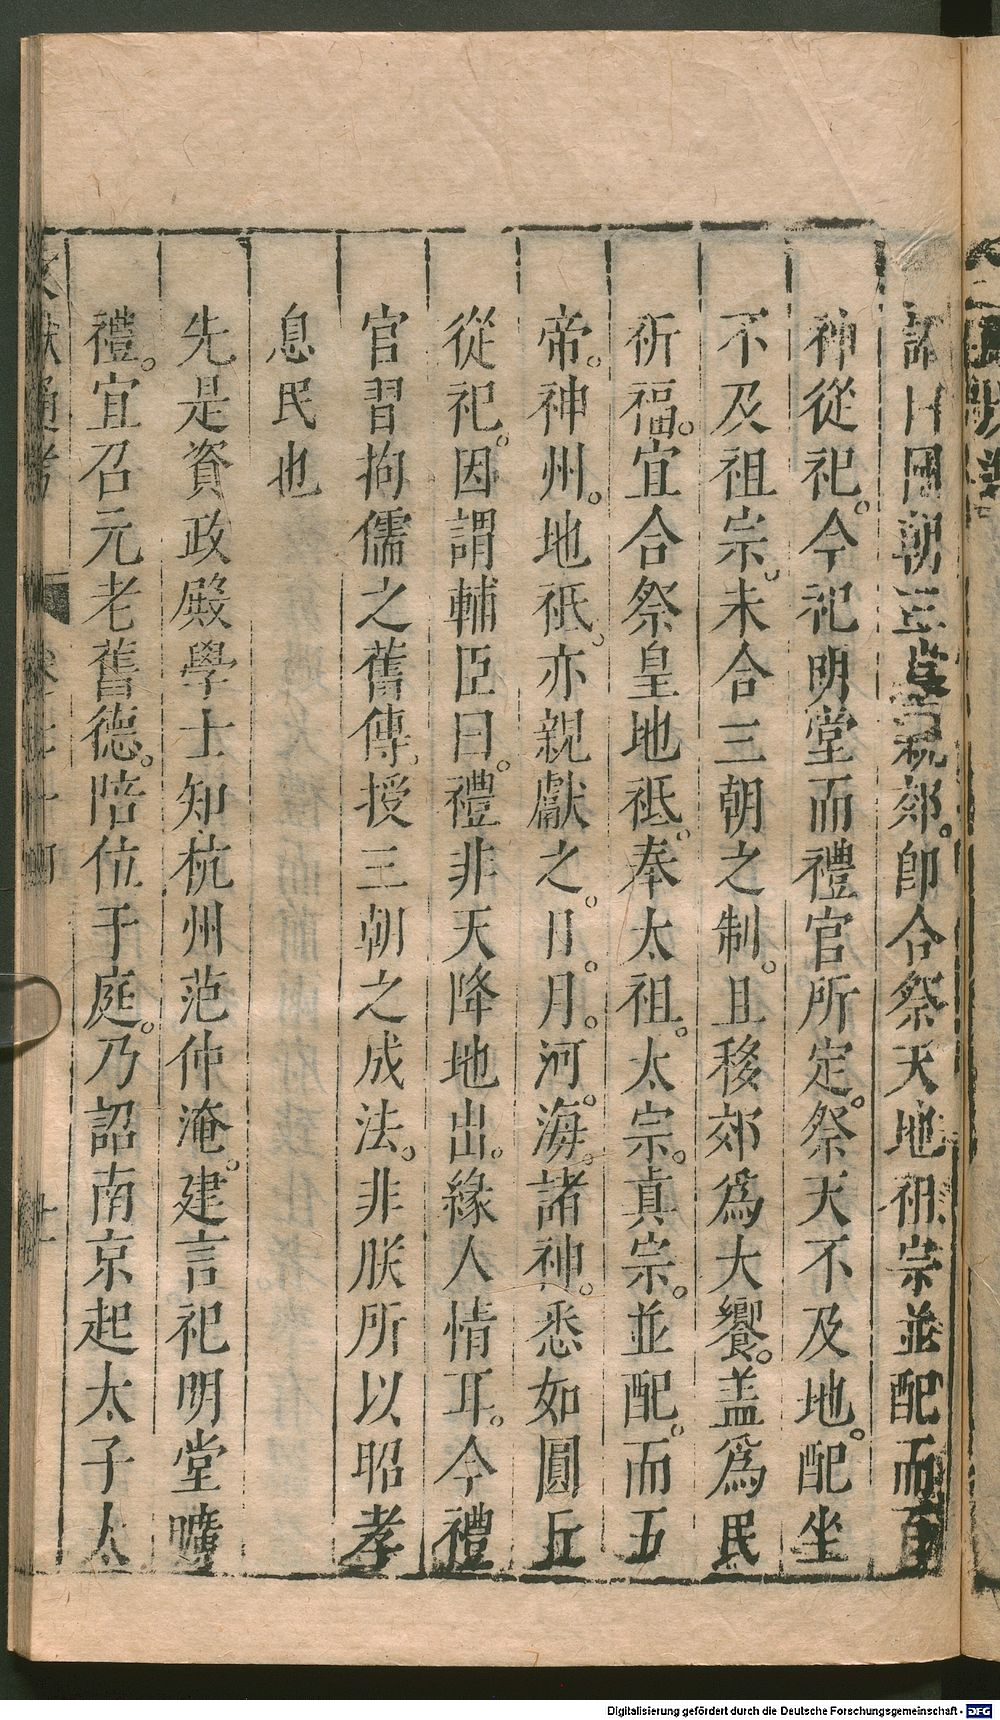 詔曰國朝三歲親郊。即合祭天地祖宗並配而百
神從祀。今祀明堂而禮官所定。祭天不及地。配坐
不及祖宗。未合三朝之制。且移郊爲大饗。盖爲民
祈福。宜合祭皇地祗。奉太祖。太宗。真宗。並配。而五
帝。神州。地祗。亦親獻之。日。月。河。海。諸神。悉如圓丘
從祀。因謂輔臣曰。禮非天降地出。緣人情耳。今禮
官習拘儒之舊傳。授三朝之成法。非朕所以昭孝
息民也
先是資政殿學士知杭州范仲淹。建言祀明堂曠
禮。宜召元老舊德。陪位于庭。乃詔南京起太子太
文獻通考 卷七十四 十
Digitalisierung gefördert durch die Deutsche Forschungsgemeinschaft - DFG